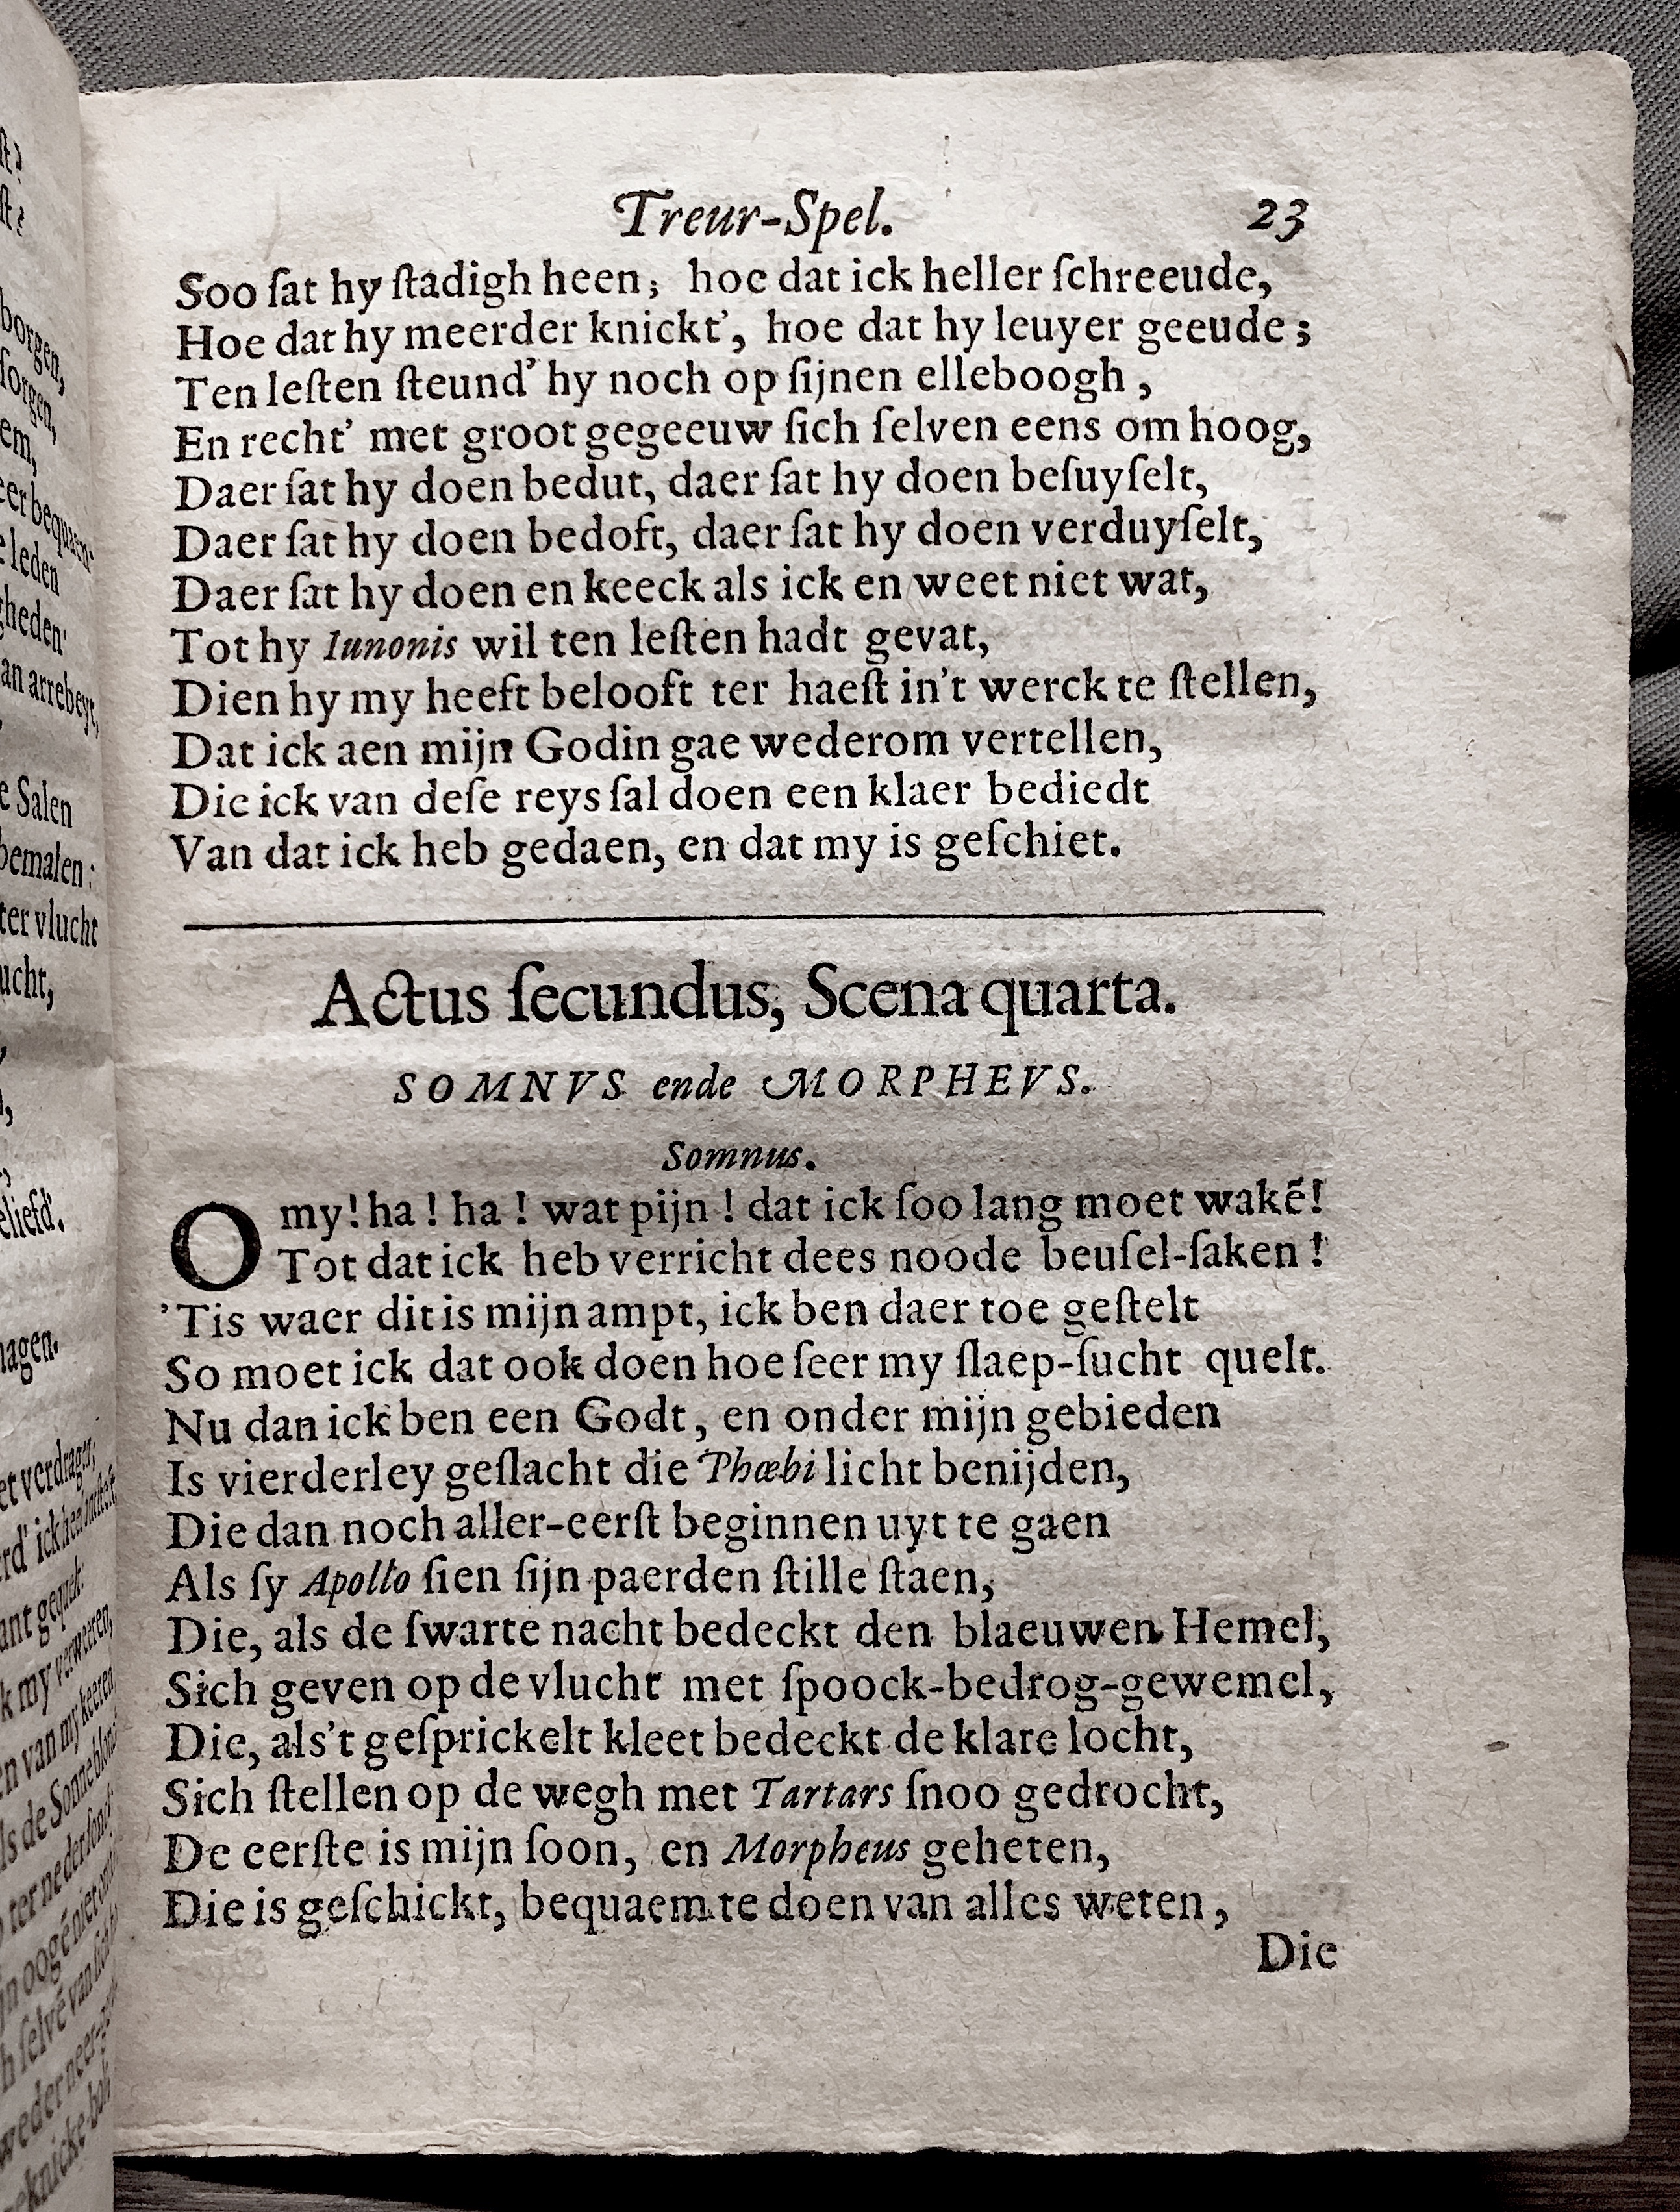 Treur-Spel. 23
Soo ſat hy ſtadigh heen; hoe dat ick heller ſchreeude,
Hoe dat hy meerder knickt’, hoe dat hy leuyer geeude;
Ten leſten ſteund’ hy noch op ſijnen elleboogh,
En recht’ met groot gegeeuw ſich ſelven eens om hoog,
Daer ſat hy doen bedut, daer ſat hy doen beſuyſelt,
Daer ſat hy doen bedoft, daer ſat hy doen verduyſelt,
Daer ſat hy doen en keeck als ick en weet niet wat,
Tot hy Iunonis wil ten leſten hadt gevat,
Dien hy my heeft belooft ter haeſt in’t werck te ſtellen,
Dat ick aen mijn Godin gae wederom vertellen,
Die ick van deſe reys ſal doen een klaer bediedt
Van dat ick heb gedaen, en dat my is geſchiet.
Actus ſecundus, Scena quarta.
SOMNVS ende MORPHEVS.
Somnus.
O my! ha! ha! wat pijn! dat ick ſoo lang moet wakẽ!
Tot dat ick heb verricht dees noode beuſel-ſaken!
’Tis waer dit is mijn ampt, ick ben daer toe geſtelt
So moet ick dat ook doen hoe ſeer my ſlaep-ſucht quelt.
Nu dan ick ben een Godt, en onder mijn gebieden
Is vierderley geſlacht die Phœbi licht benijden,
Die dan noch aller-eerſt beginnen uyt te gaen
Als ſy Apollo ſien ſijn paerden ſtille ſtaen,
Die, als de ſwarte nacht bedeckt den blaeuwen Hemel,
Sich geven op de vlucht met ſpoock-bedrog-gewemel,
Die, als’t geſprickelt kleet bedeckt de klare locht,
Sich ſtellen op de wegh met Tartars ſnoo gedrocht,
De eerſte is mijn ſoon, en Morpheus geheten,
Die is geſchickt, bequaem te doen van alles weten,
Die